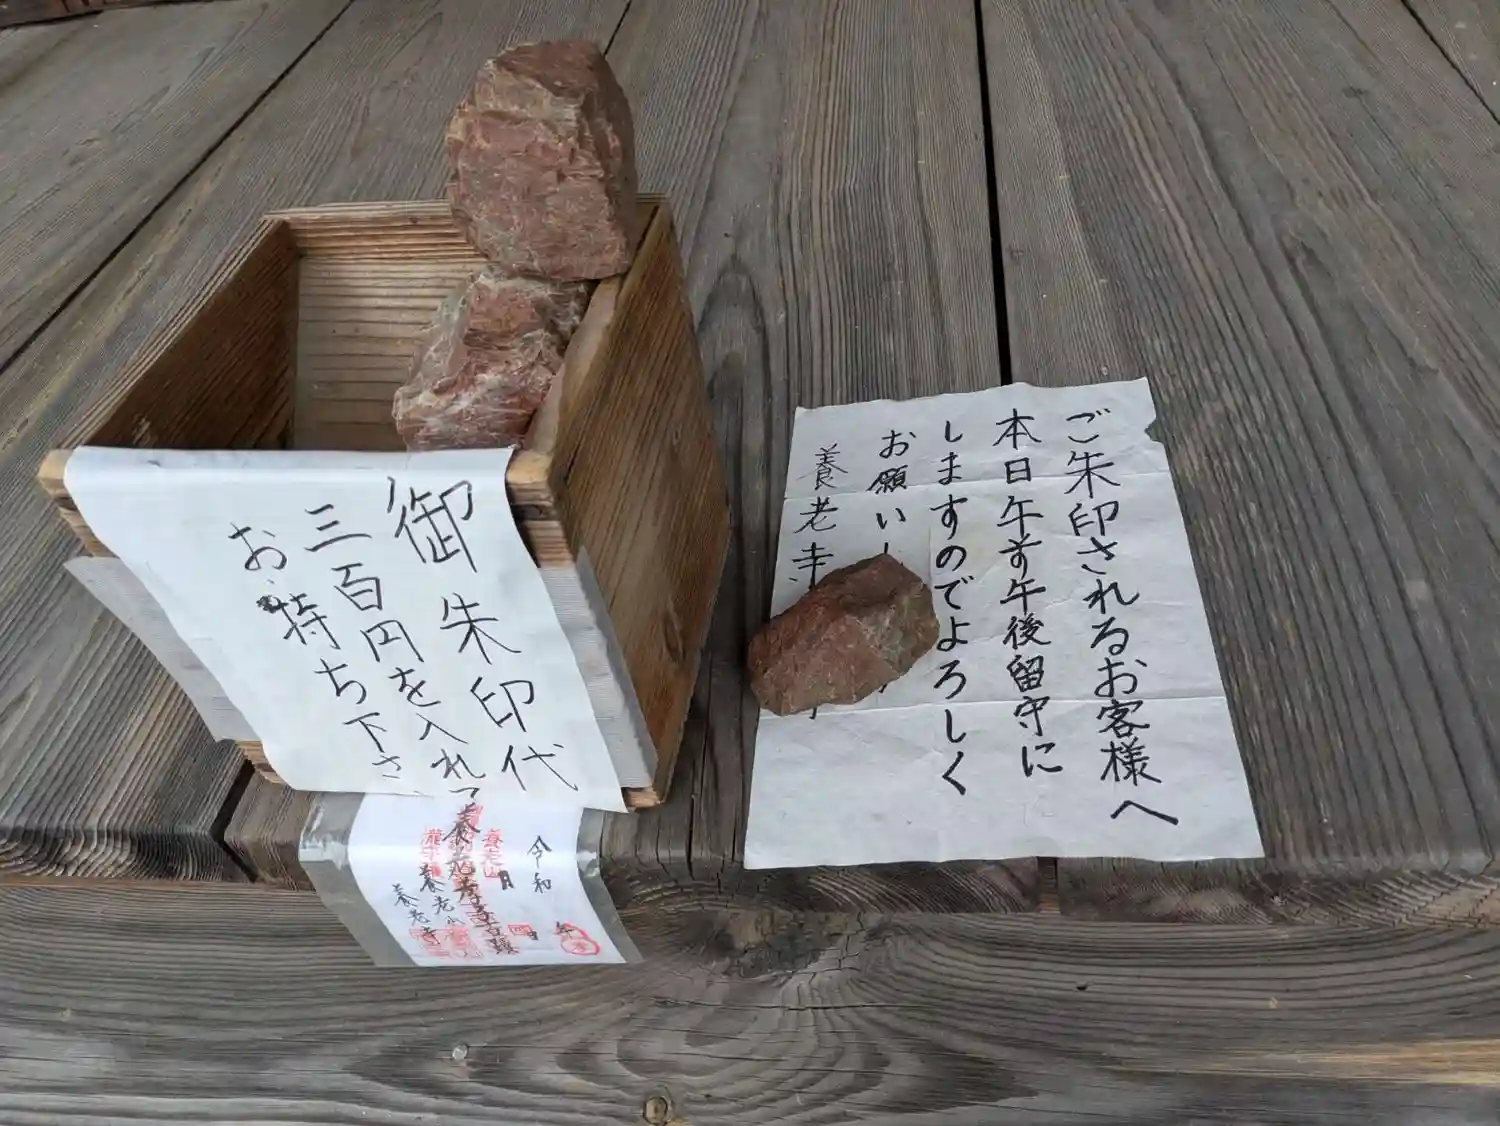 御朱印代
三百円を入れて
お持ち下さ
令和 年
月 日
養老山
養老寺
ご朱印されるお客様へ
本日午前午後留守に
しますのでよろしく
お願いし
養老寺